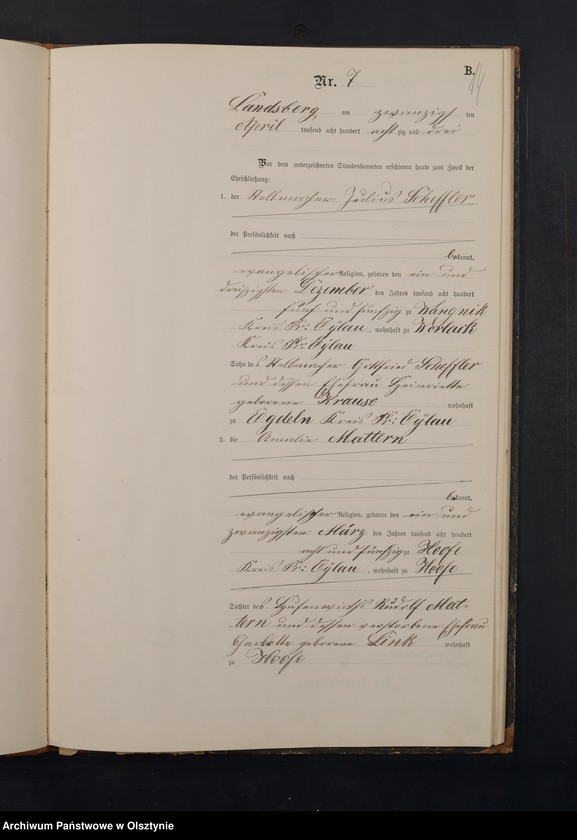 B.
14
Nr. 7
Landsberg am zwanzigsten
April tausend acht hundert achtzig und drei
Vor dem unterzeichneten Standesbeamten erschienen heute zum Zweck der
Eheschließung:
1. der Stellmacher Julius Scheffler
der Persönlichkeit nach
bekannt,
evangelischer Religion, geboren den ein und
dreizigsten Dezember des Jahres tausend acht hundert
fünf und fünfzig zu Wangnik
Kreis Pr: Eylau, wohnhaft zu Worlack
Kreis Pr: Eylau
Sohn des Stellmacher Gottfried Scheffler
und dessen Ehefrau Heinriette
geborene Krause wohnhaft
zu Kreis Pr: Eylau
2. die Amalie Mattern
der Persönlichkeit nach
bekannt,
evangelischer Religion, geboren den ein und
zwanzigsten März des Jahres tausend acht hundert
acht und fünfzig zu Hoofe
Kreis Pr: Eylau, wohnhaft zu Hoofe
Tochter des Hufenwirths Rudolf Mat-
tern und dessen verstorbene Ehefrau
Charlotte geborene Link wohnhaft
zu Hoofe
Archiwum Państwowe w Olsztynie